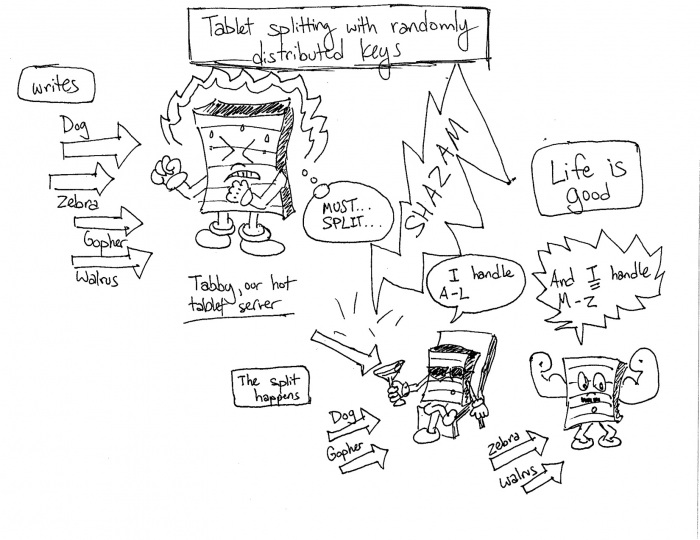 Tablet splitting with randomly
distributed keys
writes
Dog
Zebra
Gopher
Walrus
MUST...
SPLIT...
Tabby, our hot
tablet server
SHAZAM
Life is
good
I handle
A-L
And I handle
M-Z
The split
happens
Dog
Gopher
Zebra
Walrus